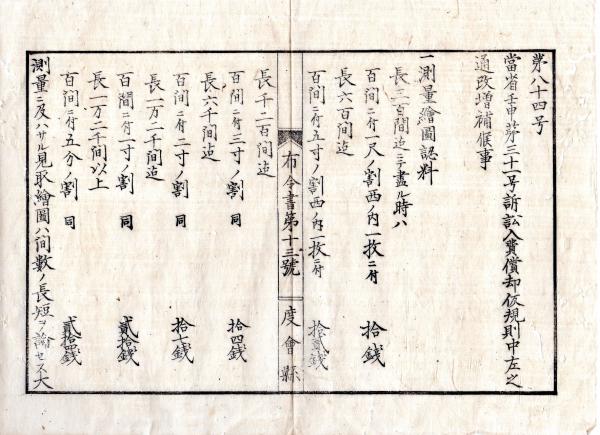 第八十四号
當省壬申第三十一号訴訟入費償却仮規則中左之
通改増補候事
一測量繪圖認料
長三百間迠ヲ盡ル時ハ
百間ニ付一尺ノ割西ノ内一枚ニ付 拾錢
長六百間迠
百間ニ付五寸ノ割西ノ内一枚ニ付 拾貳錢
布令書第十三號 度會縣
長千二百間迠
百間ニ付三寸ノ割 同 拾四錢
長六千間迠
百間ニ付二寸ノ割 同 拾七錢
長一万二千間迠
百間ニ付一寸ノ割 同 貳拾錢
長一万二千間以上
百間ニ付五分ノ割 同 貳拾四錢
測量ニ及ハサル見取繪圖ハ間數ノ長短ヲ論セス大